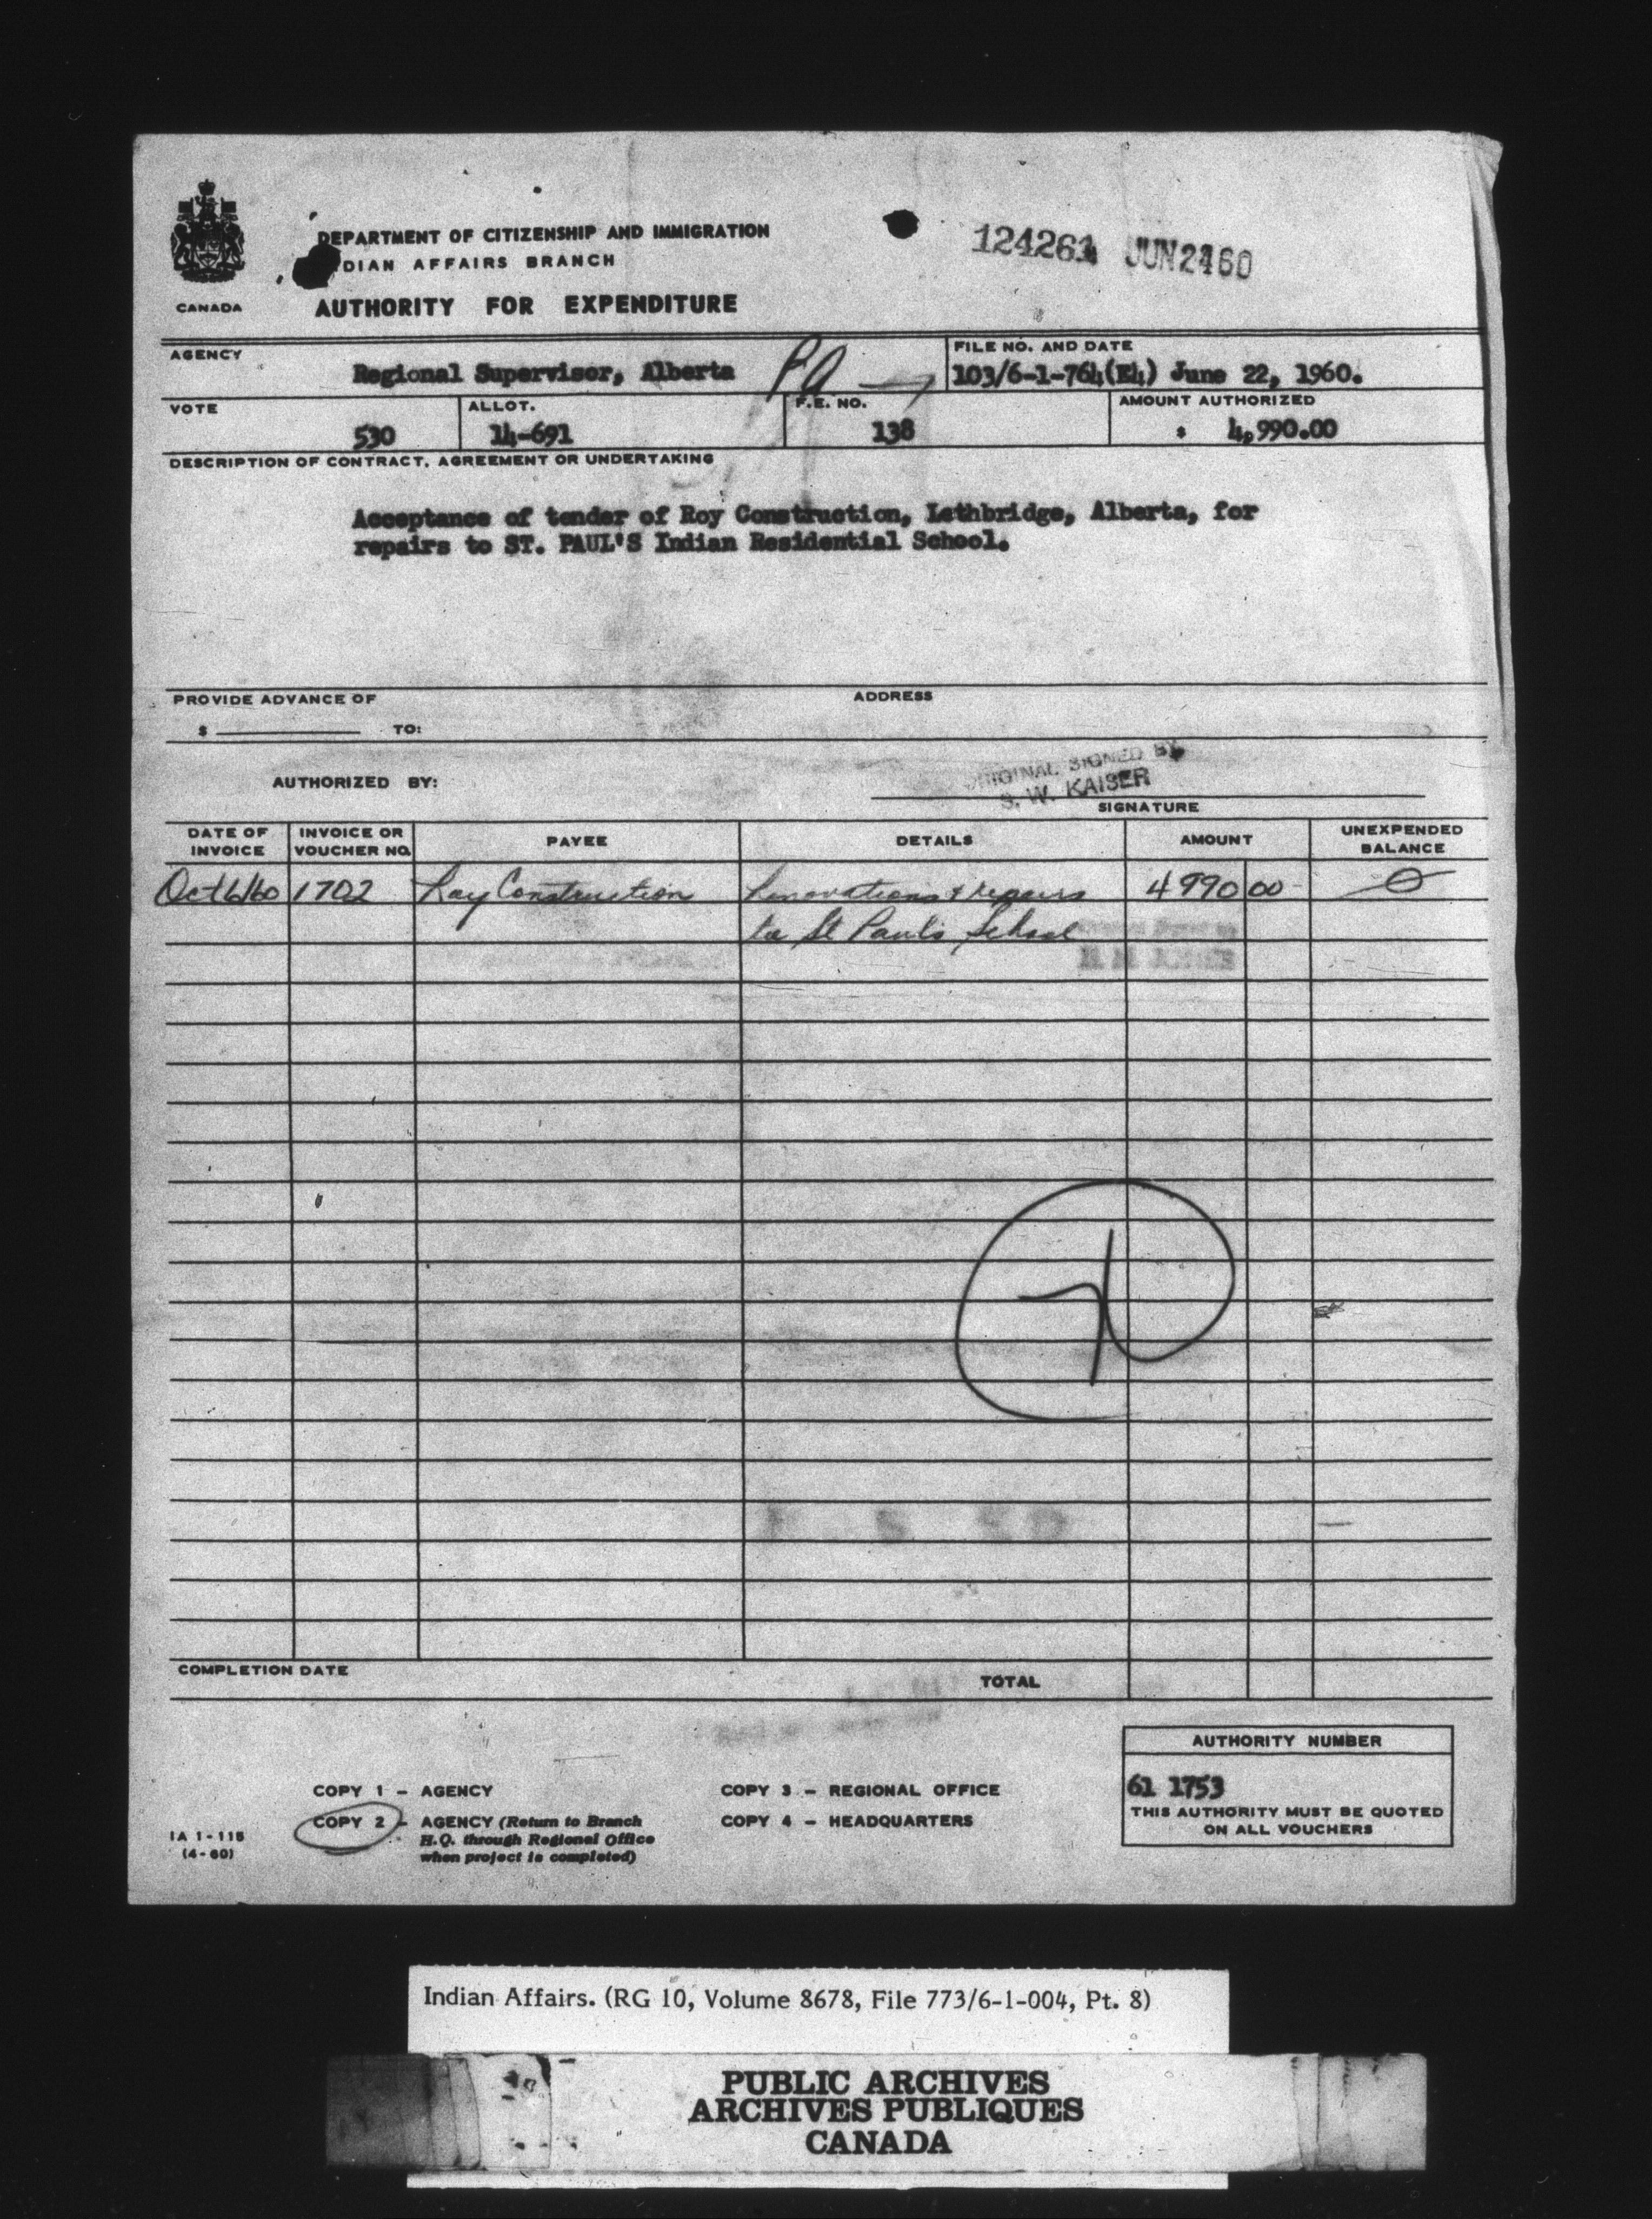 DEPARTMENT OF CITIZENSHIP AND IMMIGRATION
DIAN AFFAIRS BRANCH
CANADA
AUTHORITY FOR EXPENDITURE
124261 JUN2460
AGENCY
Regional Supervisor, Alberta
PA
FILE NO. AND DATE
103/6-1-764(E4) June 22, 1960.
VOTE
530
ALLOT.
14-691
F.E. NO.
138
AMOUNT AUTHORIZED
$ 4,990.00
DESCRIPTION OF CONTRACT, AGREEMENT OR UNDERTAKING
Acceptance of tender of Roy Construction, Lethbridge, Alberta, for
repairs to ST. PAUL'S Indian Residential School.
PROVIDE ADVANCE OF
ADDRESS
$ TO:
AUTHORIZED BY:
ORIGINAL SIGNED BY
S. W. KAISER
SIGNATURE
DATE OF INVOICE
INVOICE OR VOUCHER NO.
PAYEE
DETAILS
AMOUNT
UNEXPENDED BALANCE
Oct 6/60 1702 Roy Construction Renovations & repairs 4990 00 0
to St Paul's School
COMPLETION DATE
TOTAL
AUTHORITY NUMBER
61 1753
THIS AUTHORITY MUST BE QUOTED
ON ALL VOUCHERS
COPY 1 - AGENCY
COPY 2 - AGENCY (Return to Branch
H.Q. through Regional Office
when project is completed)
COPY 3 - REGIONAL OFFICE
COPY 4 - HEADQUARTERS
IA 1-115
(4-60)
Indian Affairs. (RG 10, Volume 8678, File 773/6-1-004, Pt. 8)
PUBLIC ARCHIVES
ARCHIVES PUBLIQUES
CANADA